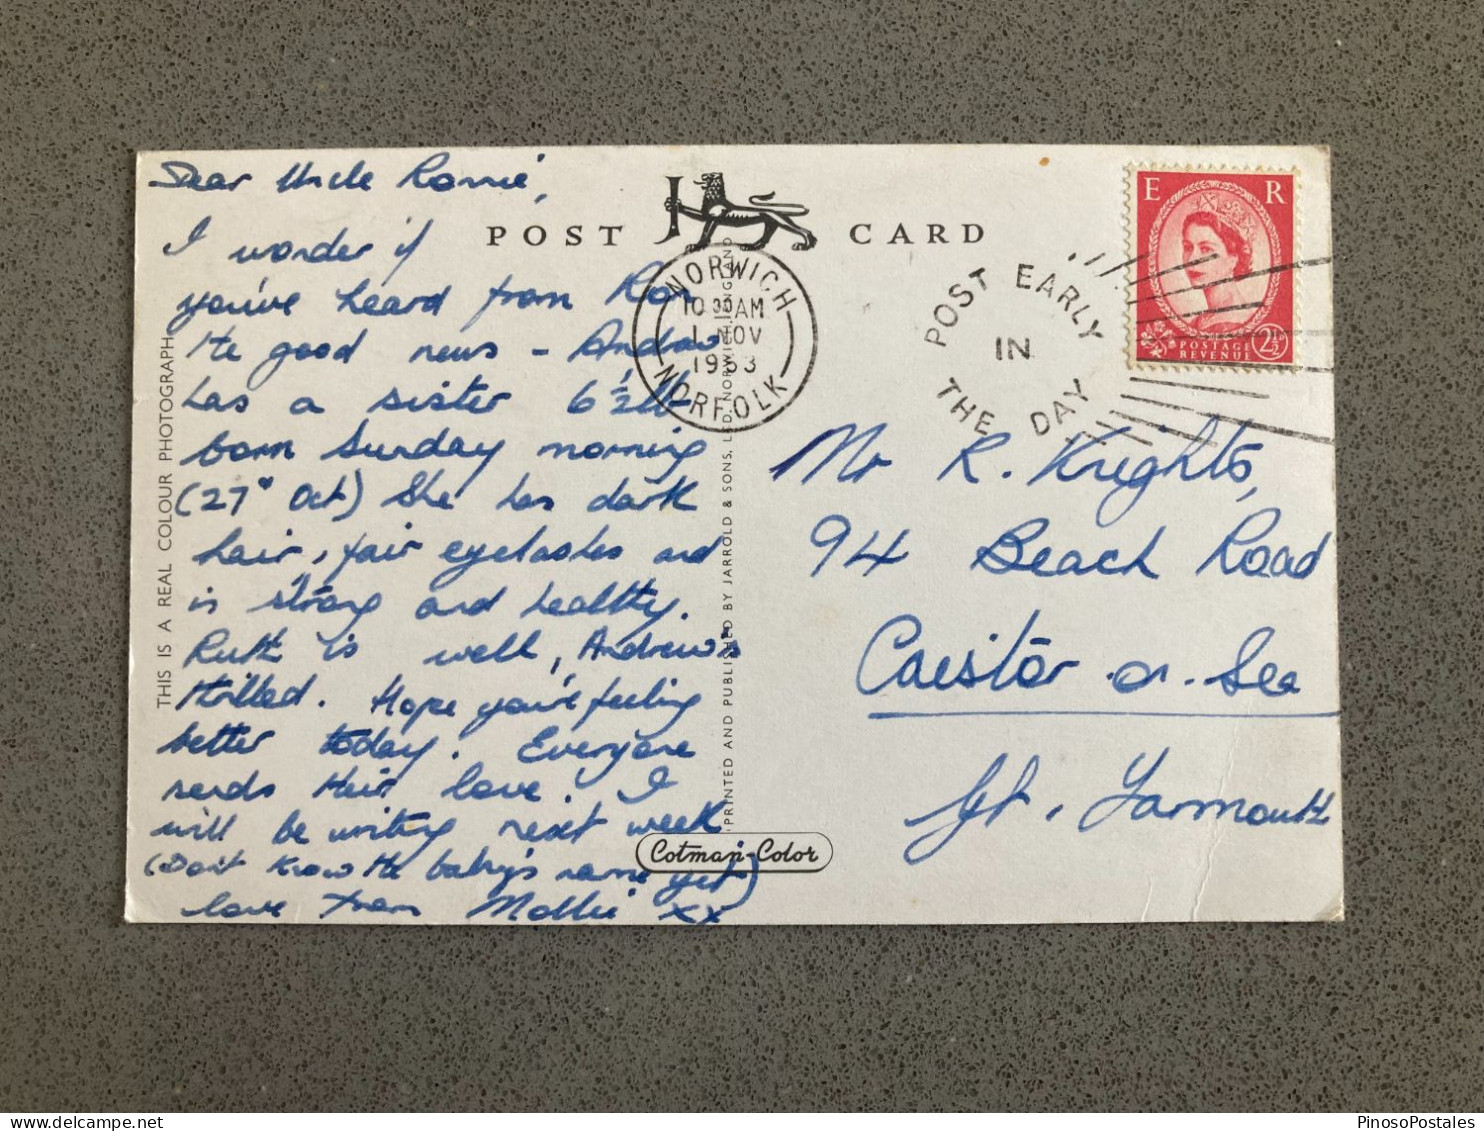 Dear Uncle Ronnie,
I wonder if
you've heard from Ron
the good news - Andrew
has a sister 6½lb
born Sunday morning
(27th Oct) She has dark
hair, fair eyelashes and
is strong and healthy.
Ruth is well, Andrew's
thrilled. Hope you're feeling
better today. Everyone
sends their love. I
will be writing next week
(Don't know the baby's name yet)
love from Mollie xx
POST CARD
NORWICH
10 30 AM
1 NOV
NORFOLK
POST EARLY
IN
THE DAY
E R
POSTAGE
REVENUE
2½D
Mr R. Knights,
94 Beach Road
Caistor-on-Sea
Gt. Yarmouth
THIS IS A REAL COLOUR PHOTOGRAPH
PRINTED AND PUBLISHED BY JARROLD & SONS, LTD, NORWICH, ENGLAND
Cotman-Color
PinosoPostales